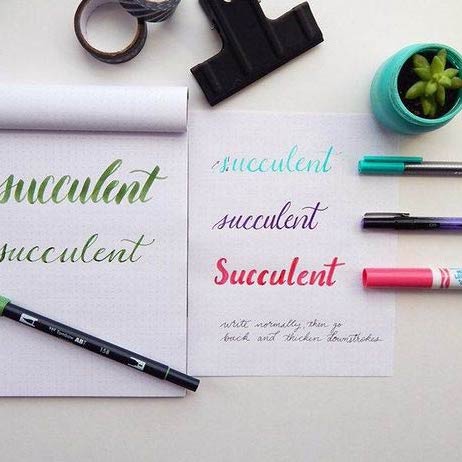 succulent
succulent
succulent
succulent
Succulent
write normally, then go
back and thicken downstrokes
ABT
158